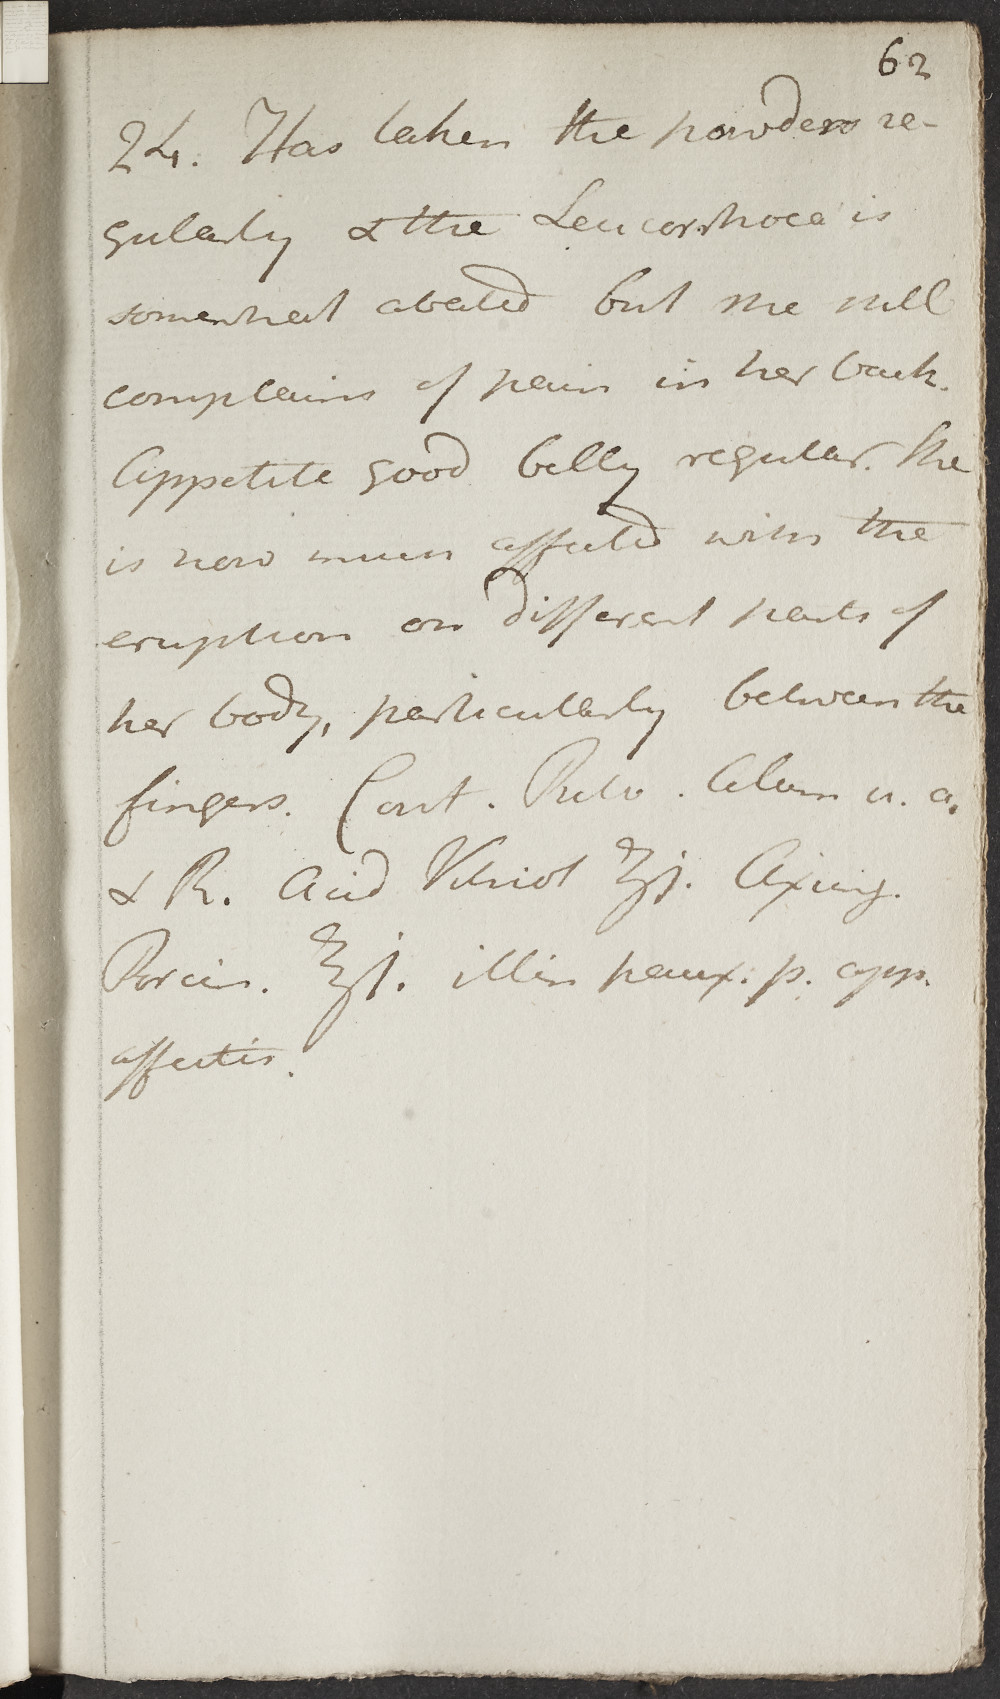 62
24. Has taken the powders re-
gularly & the Leucorrhoea is
somewhat abated but she still
complains of pain in her back.
Appetite good belly regular. She
is now much affected with the
eruption on different parts of
her body, particularly between the
fingers. Cont. Pulv. Alum u. a.
& R. Acid Vitriol ʒj. Axung.
Porcin. ℥j. illin paux. p. app.
affectis.